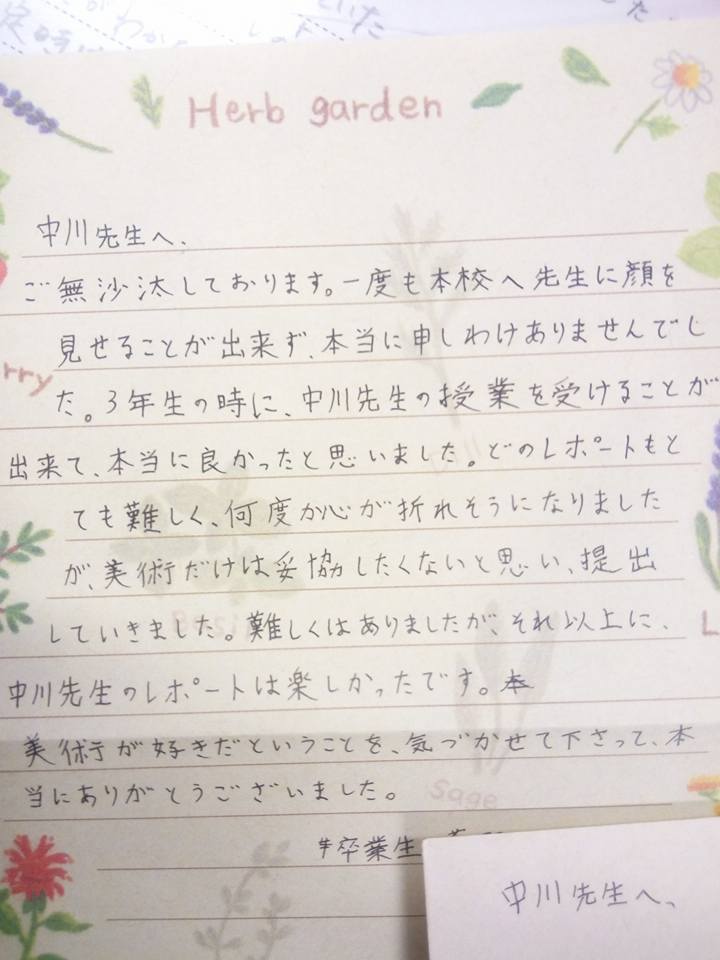 Herb garden
中川先生へ、
ご無沙汰しております。一度も本校へ先生に顔を
見せることが出来ず、本当に申しわけありませんでし
た。3年生の時に、中川先生の授業を受けることが
出来て、本当に良かったと思いました。どのレポートもと
ても難しく、何度か心が折れそうになりました
が、美術だけは妥協したくないと思い、提出
していきました。難しくはありましたが、それ以上に、
中川先生のレポートは楽しかったです。本
美術が好きだということを、気づかせて下さって、本
当にありがとうございました。
sage
卒業生
中川先生へ、